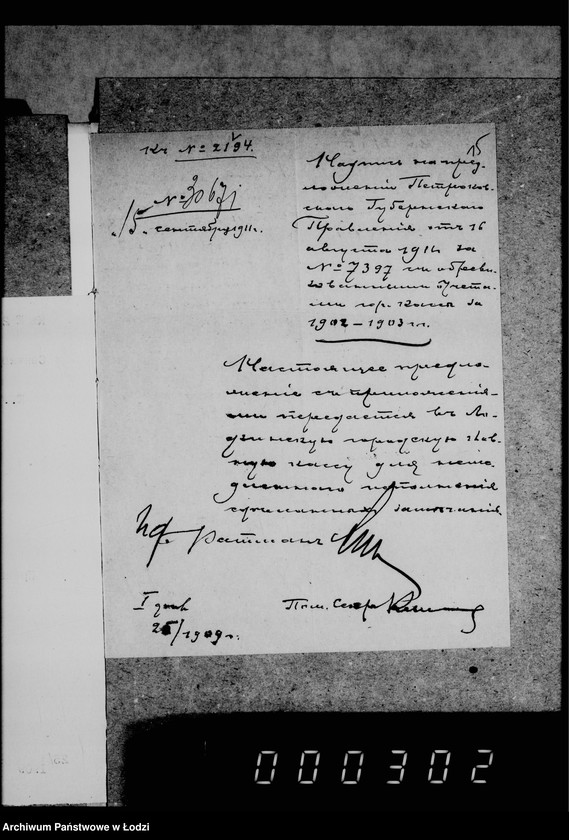 Къ № 2194.
№ 3067j
"15" сентября 1911 г.
15
Надпись на пред-
ложении Петроков-
скаго Губернскаго
Правления отъ 16
августа 1911 за
№ 7397 съ обреви-
зованными счета-
ми гор. кассы за
1902 – 1903 гг.
Настоящее предло-
жение съ приложения-
ми передается въ Ло-
дзинскую городскую глав-
ную кассу для неме-
дленнаго исполнения
сделанныхъ замечаний.
Ратманъ
Пом. Секр.
I
25/1909 г.
000302
Archiwum Państwowe w Łodzi